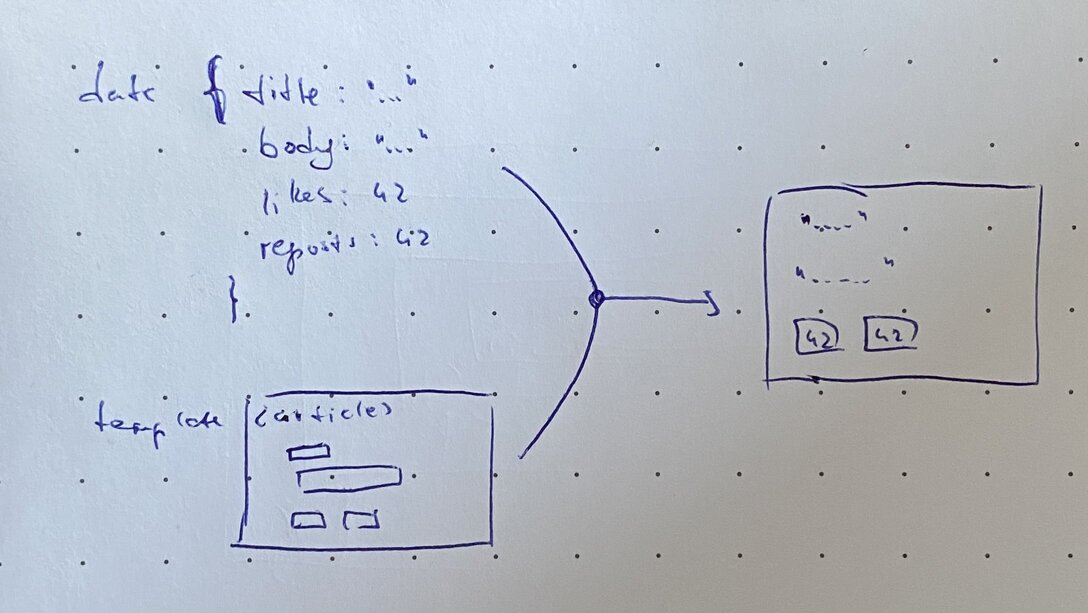 data { title: "..."
body: "..."
likes: 42
reposts: 42
}
template
<article>
"...."
"....."
42 42